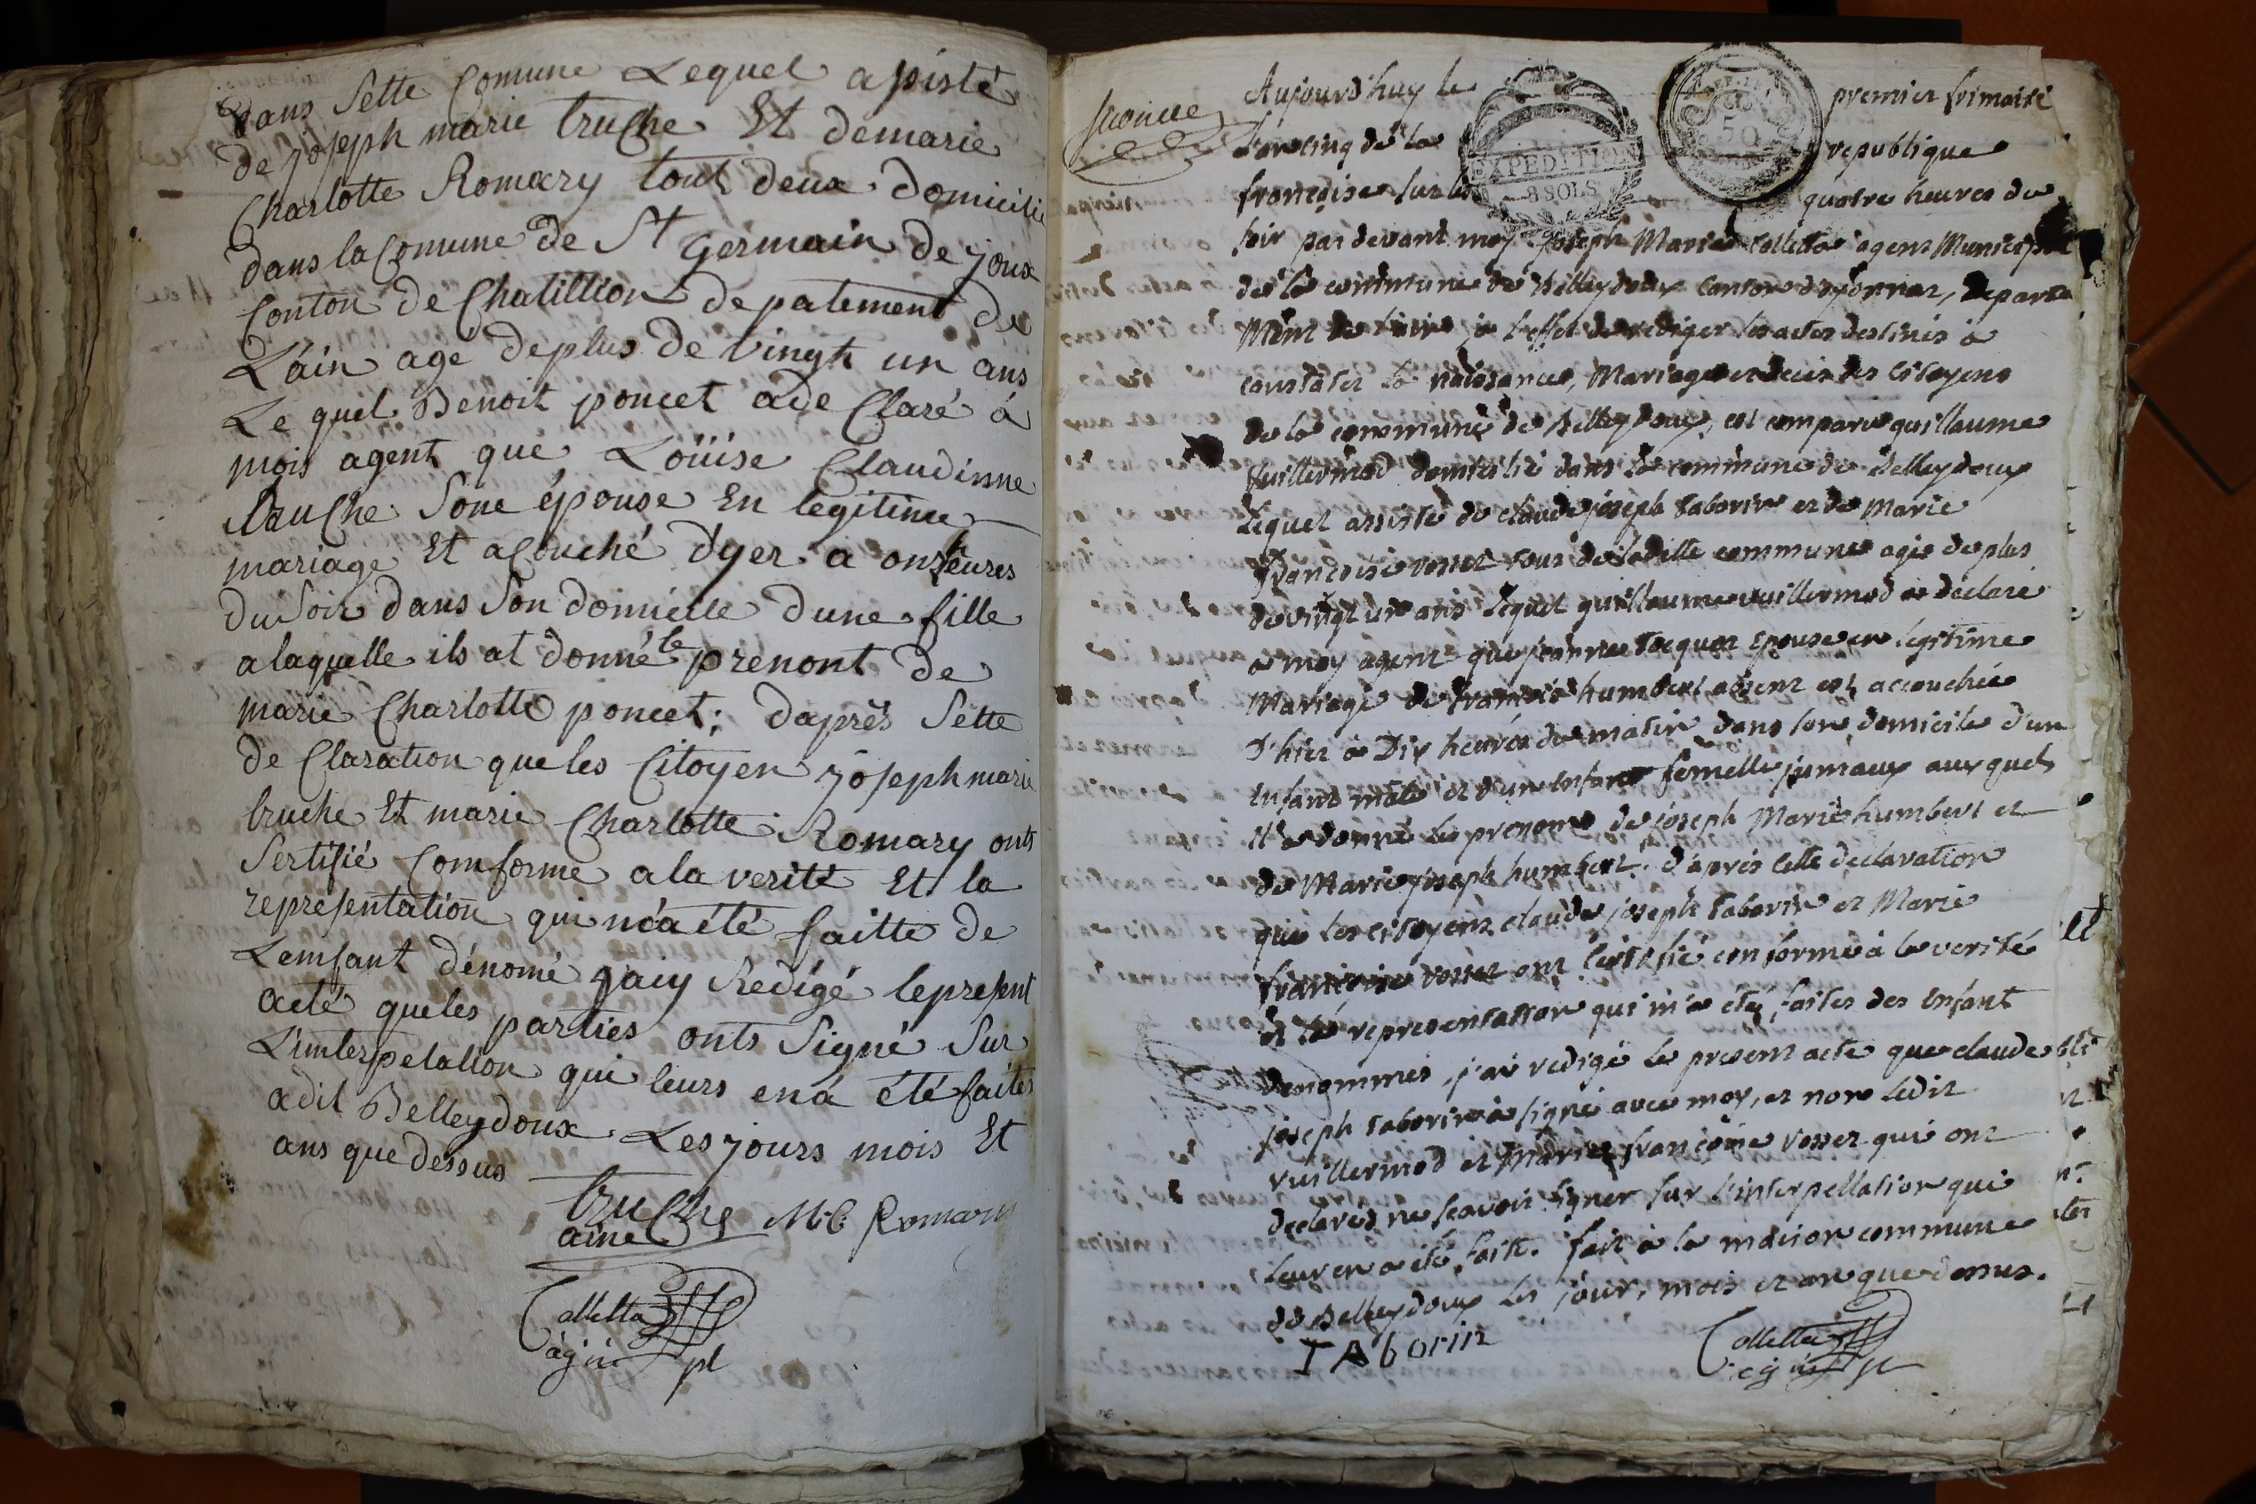 dans Sette Comune Lequel apisté
de joseph marie truche Et demarie
Charlotte Romary tout deux domicilie
dans la Comune de St Germain de joux
Conton de Chatillion depatement de
L'ain age deplus de vingt un ans
Le quel Benoit poncet ade Claré á
mois agent que Loüise Claudinne
truche Sone épouse En legitime
mariage Et acouché d'yer a onzeures
du Soir dans Son domicile d'une fille
a laquelle ils at donné le prenont de
marie Charlotte poncet; daprês Sette
de Claration que les Citoyen joseph marie
truche Et marie Charlotte Romary onts
Sertifié Comforme a la verité Et la
representation qui m'a été faitte de
L'emfant dénomé jaiy Redigé lepresent
acte queles parties onts Signé Sur
L'imterpelation qui leurs en á été faites
adit Belleydoux Les jours mois Et
ans que dessus
truche M.C. Romary
ainé
Colletta
agent pl
Aujourd'huy le premier frimaire
EXPEDITION
8 SOLS
50
L'an cinq de la republique
françoise sur les quatre heures du
soir par devant moy joseph Marie Colletta agent Municipal
de la commune de Belleydoux canton d'oyonnax, departe
Ment de l'ain, à l'effet de rediger les actes destinés à
constater la naissance, Mariages et decès des citoyens
de la commune de Belleydoux, est comparu guillaume
Vuillermod domicilié dans la commune de Belleydoux
Lequel assisté de claude joseph Taborin et de Marie
françoise vosser tous de ladille commune agés de plus
de vingt un ans Lequel guillaume vuillermod a déclaré
a moy agent que jeanne Jacquet epouse en legitime
Mariage de françois humbert absent est accouchée
D'hier à Dix heures du matin dans son domicile d'un
Enfant mâle et d'un enfant femelle jumeaux aux quels
Il a donné les prenoms de joseph Marie humbert et
de Marie joseph humbert. d'après cette declaration
que les citoyens claude joseph Taborin et Marie
françoise vosser ont Certifié conforme à la verité
et la representation qui m'a eté faites des Enfant
denommés, j'ai redigé le present acte que claude
joseph Taborin a signé avec moy, et non ledit
vuillermod et Marie françoise vosser qui ont
declarés ne scavoir signer sur l'interpellation qui
leur en a été faite. fait à la maison commune
de Belleydoux les jour, mois et an que dessus.
TAborin
Colletta
agent pl